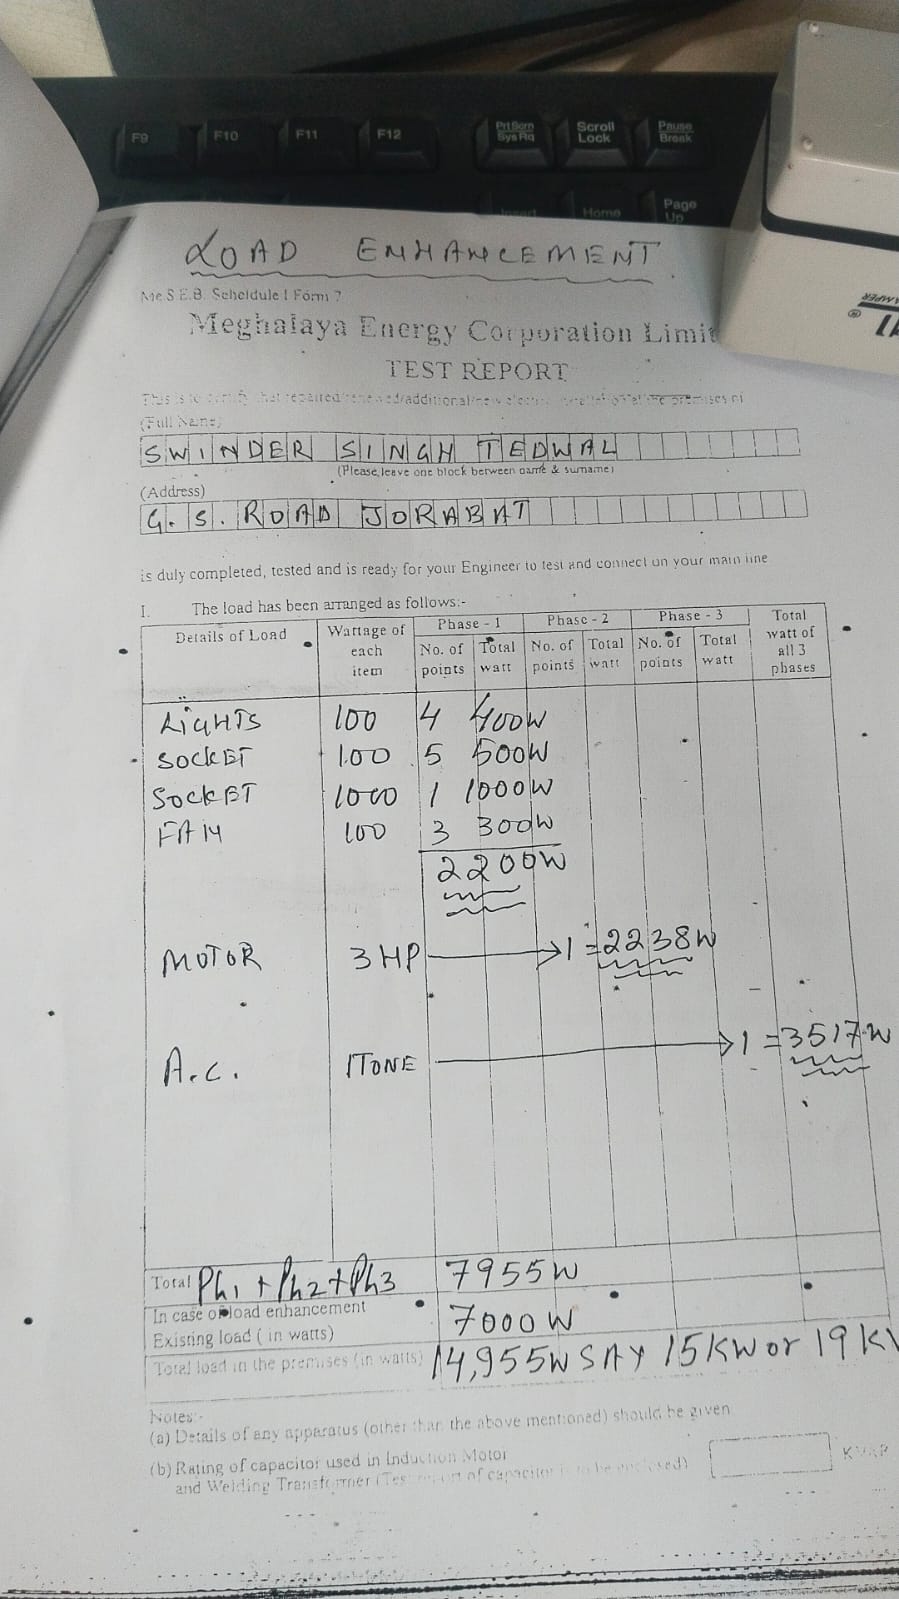 F9 F10 F11 F12 Prt Scrn Scroll Pause
Sys Rq Lock Break
Insert Home Page
Up
LOAD ENHANCEMENT.
Me.S.E.B. Scheldule I Form 7
Meghalaya Energy Corporation Limit
TEST REPORT
This is to certify that repaired/renewed/additional/new of the premises of
(Full Name)
SWINDER SINGH TEDWAL
(Please leave one block between name & surname)
(Address)
G.S. ROAD JORABAT
is duly completed, tested and is ready for your Engineer to test and connect on your main line
I. The load has been arranged as follows:-
Details of Load Wattage of each item Phase - 1 Phase - 2 Phase - 3 Total watt of all 3 phases
No. of points Total watt No. of points Total watt No. of points Total watt
LIGHTS 100 4 400W
SOCKET 100 5 500W
SOCKET 1000 1 1000W
FAN 100 3 300W
2200W
MOTOR 3HP 1 = 2238W
A.C. 1TONE 1 = 3517W
Total Ph1 + Ph2 + Ph3 7955W
In case of load enhancement
Existing load ( in watts) 7000W
Total load in the premises (in watts) 14,955W SAY 15KW or 19 K
Notes:-
(a) Details of any apparatus (other than the above mentioned) should be given
(b) Rating of capacitor used in Induction Motor
and Welding Transformer (Test report of capacitor is to be enclosed) KVAR